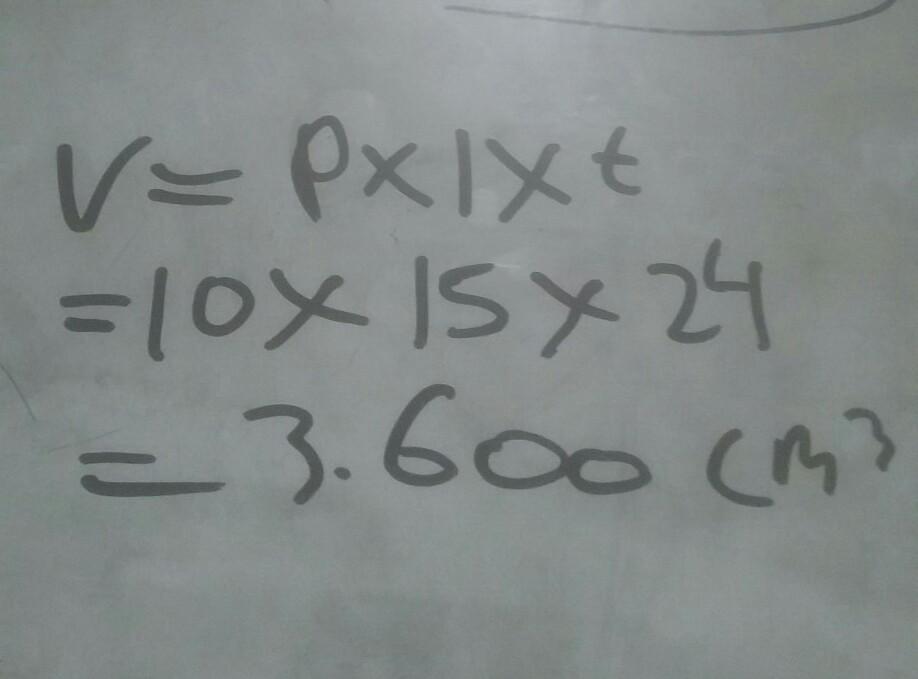 V = p x l x t
= 10 x 15 x 24
= 3.600 cm³